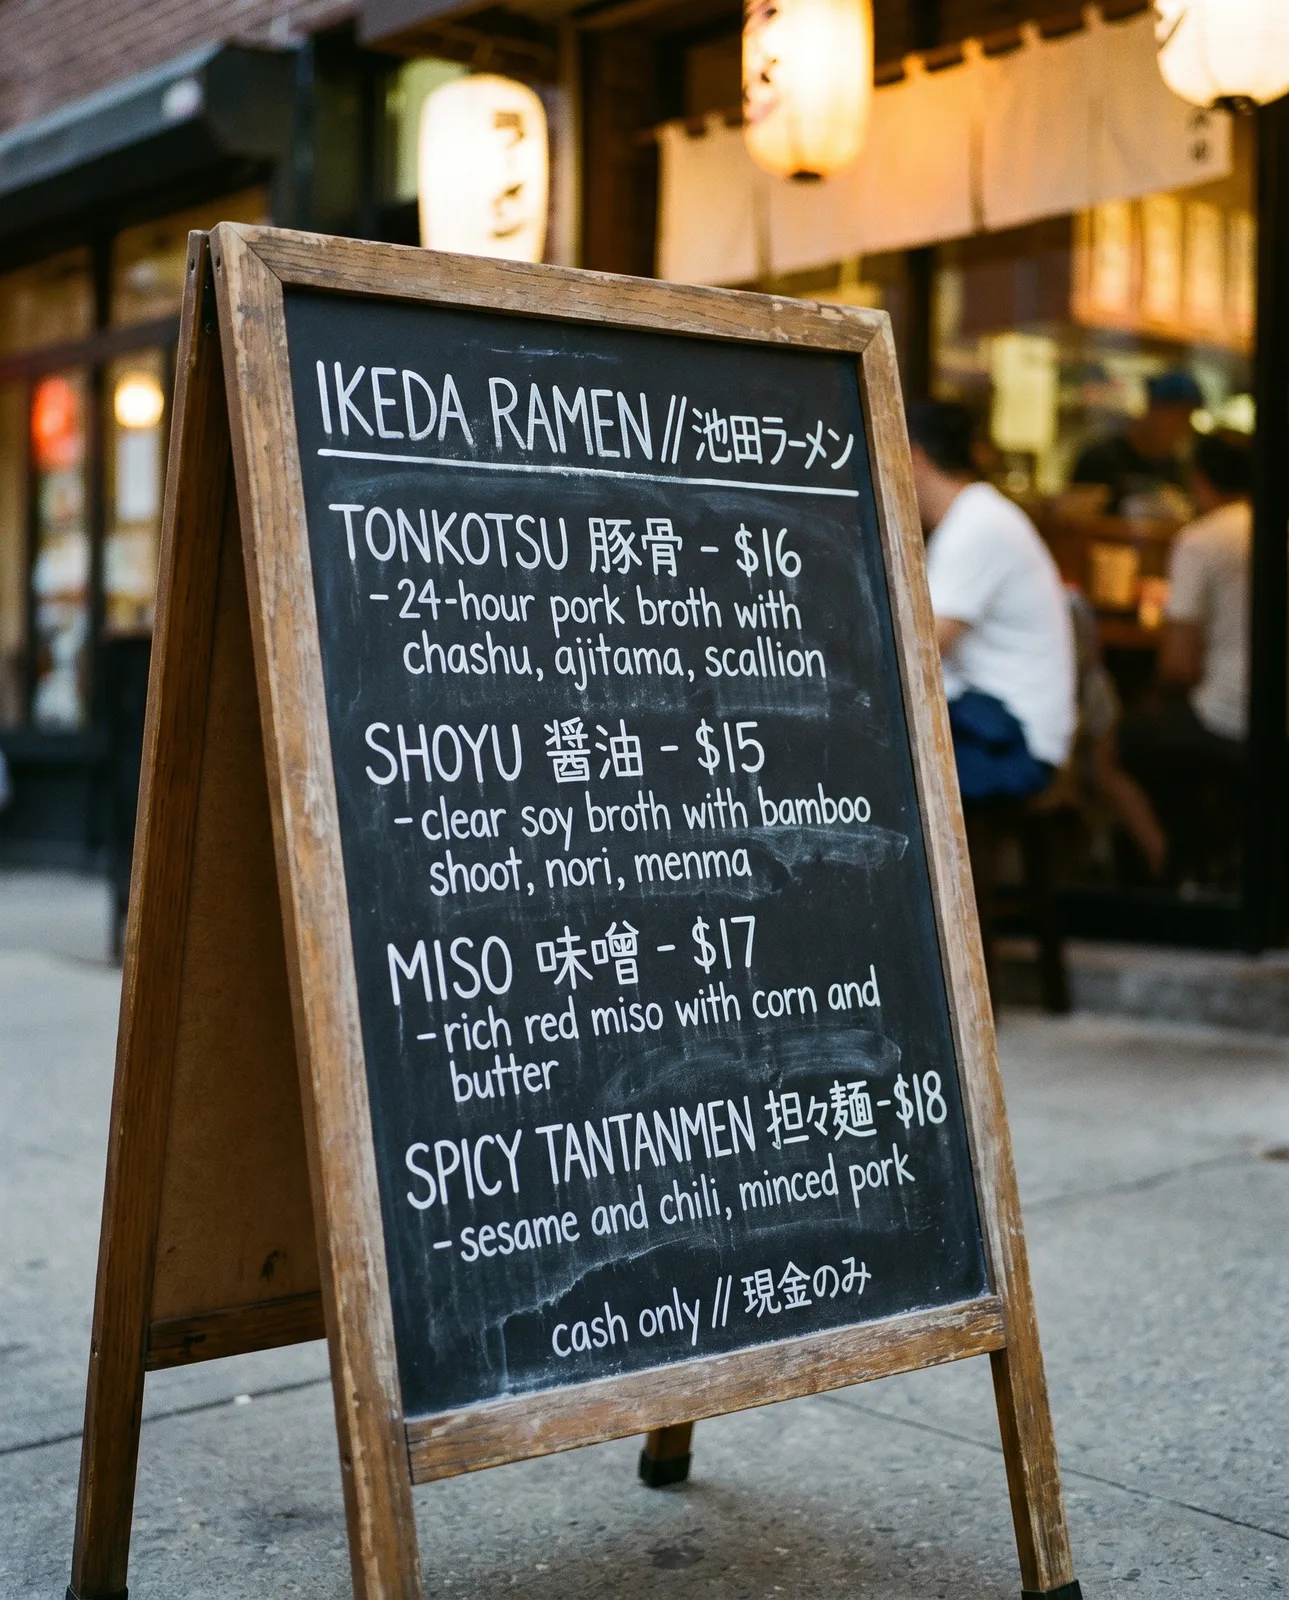 IKEDA RAMEN // 池田ラーメン
TONKOTSU 豚骨 - $16
- 24-hour pork broth with
chashu, ajitama, scallion
SHOYU 醤油 - $15
- clear soy broth with bamboo
shoot, nori, menma
MISO 味噌 - $17
- rich red miso with corn and
butter
SPICY TANTANMEN 担々麺 - $18
- sesame and chili, minced pork
cash only // 現金のみ